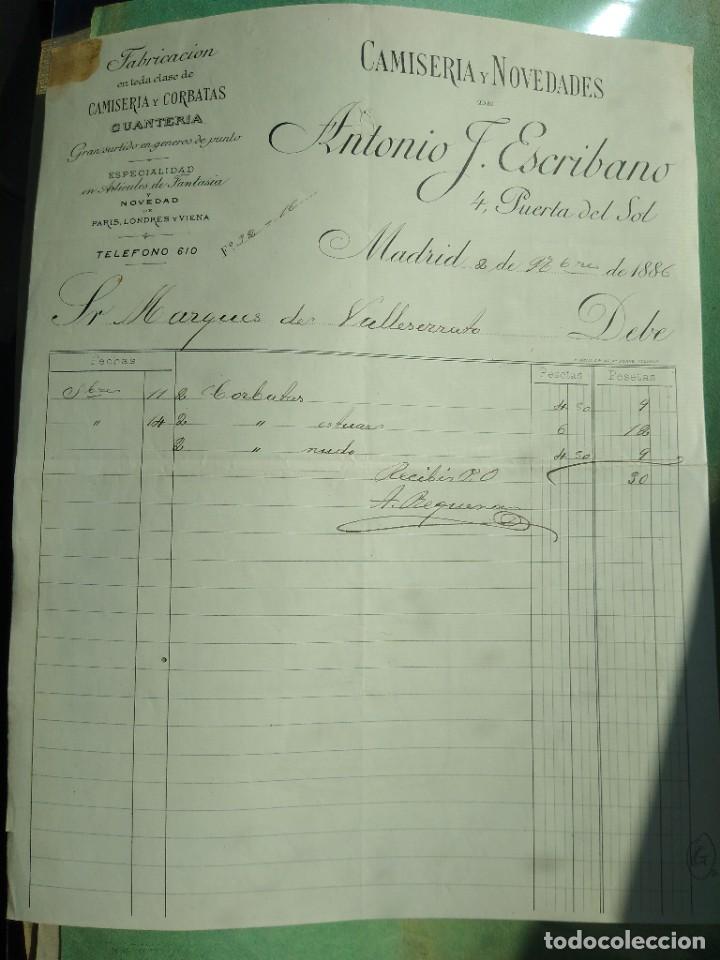 Fabricacion
en toda clase de
CAMISERIA Y CORBATAS
GUANTERIA
Gran surtido en generos de punto
ESPECIALIDAD
en Articulos de Fantasia
Y
NOVEDAD
DE
PARIS, LONDRES Y VIENA
TELEFONO 610
CAMISERIA Y NOVEDADES
DE
Antonio J. Escribano
4, Puerta del Sol
Madrid 2 de de 1886
Sr Marques de Debe
Fechas Pesetas Pesetas
11 2 Corbatas 4 50 9
" 14 2 " 6 12
2 " nudo 4 50 9
Recibi P.O 30
A. Requena
G
todocoleccion
todocoleccion.net